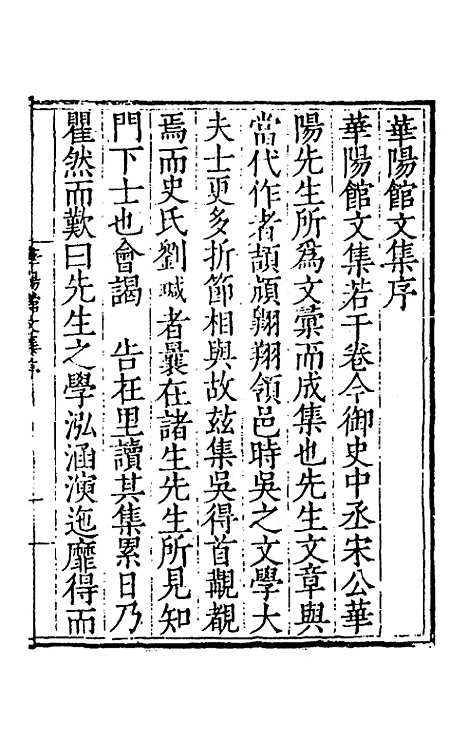 華陽館文集序
華陽館文集若干卷今御史中丞宋公華
陽先生所爲文彙而成集也先生文章與
當代作者頡頏翺翔領邑時吳之文學大
夫士更多折節相與故玆集吳得首覩覩
焉而史氏劉瑊者曩在諸生先生所見知
門下士也會謁 告在里讀其集累日乃
瞿然而歎曰先生之學泓涵演迤靡得而
華陽館文集序